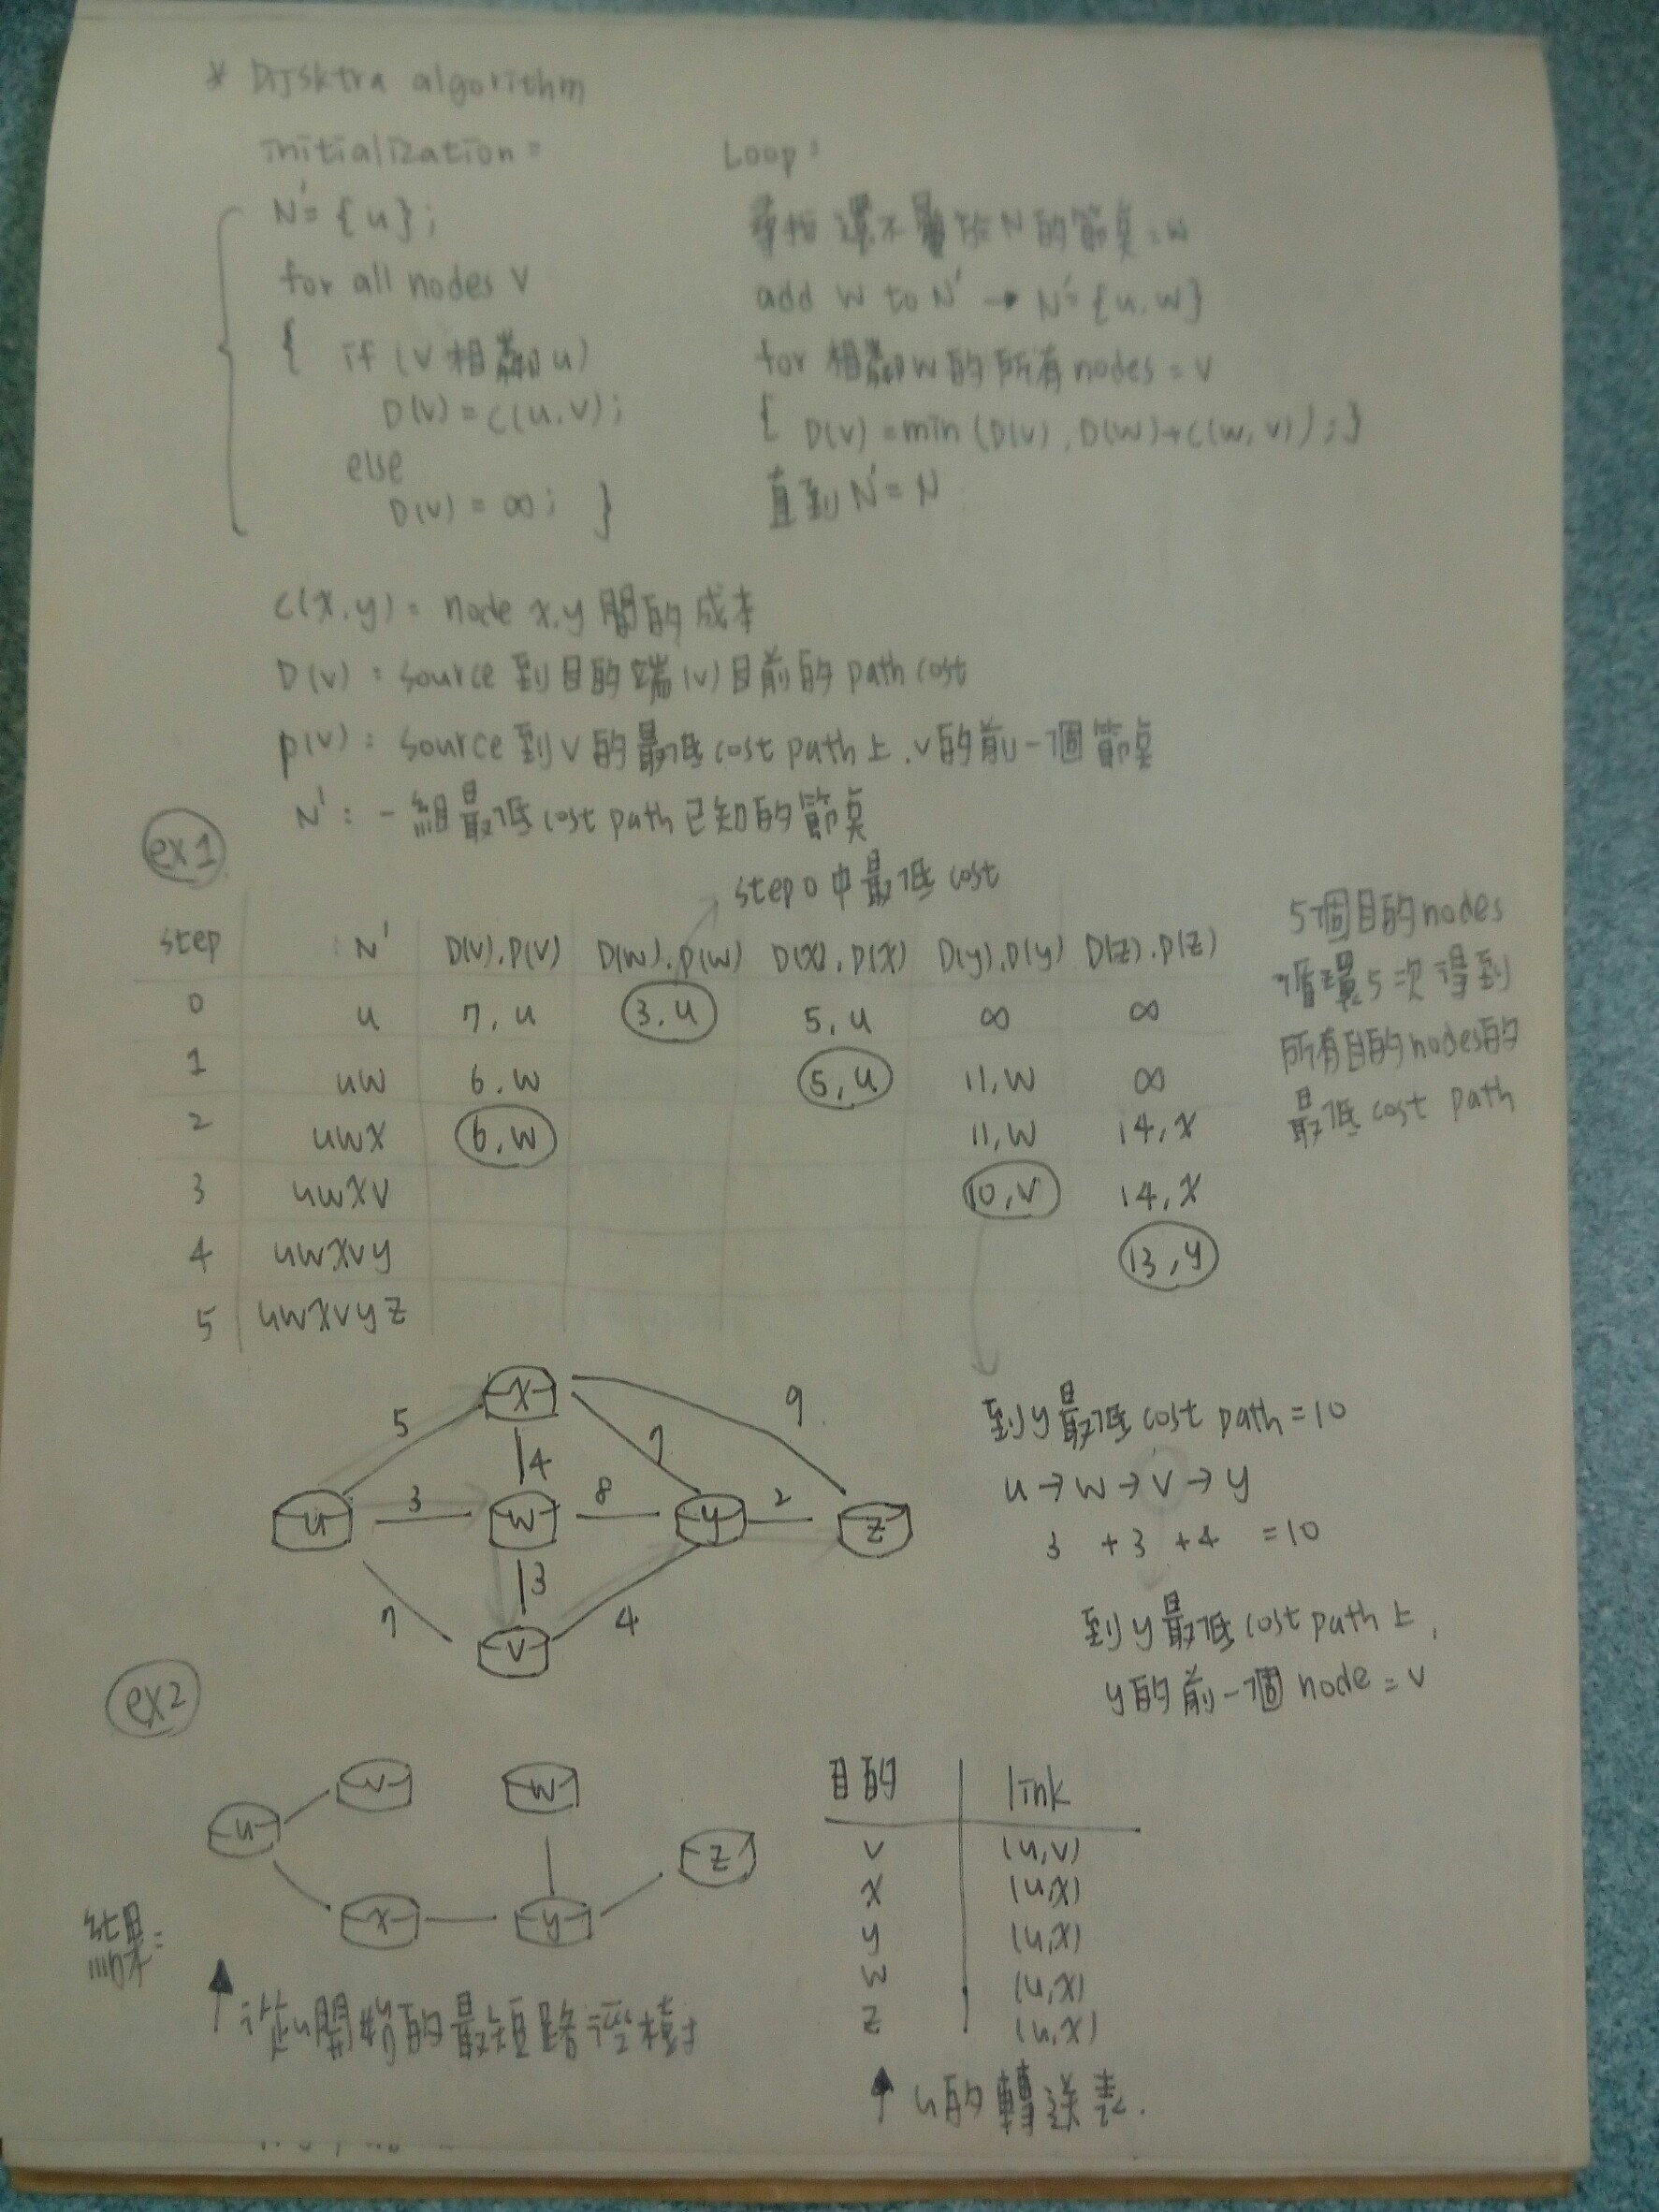 * Dijsktra algorithm
initialization:
N'={u};
for all nodes v
{ if (v相鄰u)
D(v)=c(u,v);
else
D(v)=∞; }
Loop:
尋找還不屬於N的節點:w
add w to N' → N'={u,w}
for 相鄰w的所有nodes:v
{ D(v)=min(D(v),D(w)+c(w,v));}
直到N'=N
c(x,y): node x,y 間的成本
D(v): source 到目的端(v)目前的path cost
p(v): source 到v的最低cost path上,v的前一個節點
N': 一組最低cost path已知的節點
ex1
step 0 中最低 cost
step N' D(v),P(v) D(w),p(w) D(x),P(x) D(y),P(y) D(z),P(z)
0 u 7,u 3,u 5,u ∞ ∞
1 uw 6,w 5,u 11,w ∞
2 uwx 6,w 11,w 14,x
3 uwxv 10,v 14,x
4 uwxvy 13,y
5 uwxvyz
5個目的nodes
循環5次得到
所有目的nodes的
最低cost path
x
5 9
4 7
u 3 w 8 y 2 z
3
7 4
v
到y最低cost path=10
u→w→v→y
3 +3 +4 =10
到y最低cost path上,
y的前一個node=v
ex2
v w
u z
x y
結果:
從u開始的最短路徑樹
目的 link
v (u,v)
x (u,x)
y (u,x)
w (u,x)
z (u,x)
u的轉送表.